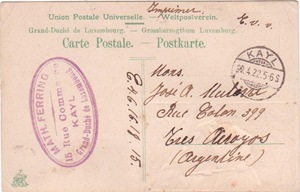 Imprimer
Union Postale Universelle. — Weltpostverein.
E. v. v.
Grand-Duché de Luxembourg. — Grossherzogthum Luxemburg.
Carte Postale. — Postkarte.
KAYL
26.4.22.5-6S
MATH. FERRING
15 Rue Commerce
KAYL
Grand-Duché de Luxembourg
Mons.
José A.
Rue Colon 399
Tres Arroyos
(Argentine)